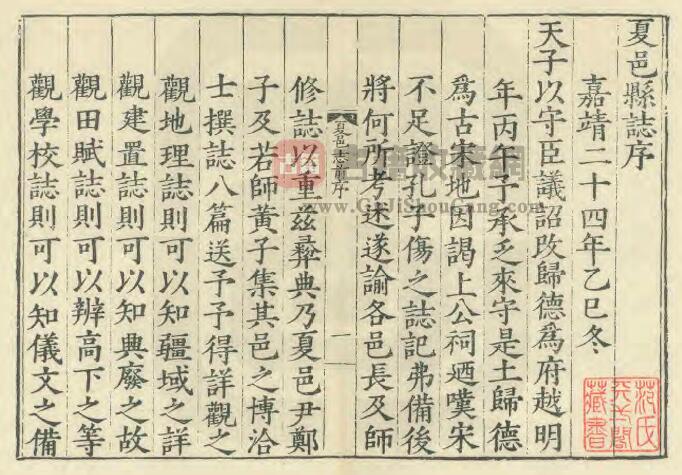 夏邑縣誌序
嘉靖二十四年乙巳冬
天子以守臣議詔改歸德爲府越明
年丙午予承乏來守是土歸德
爲古宋地因謁上公祠迺嘆宋
不足證孔子傷之誌記弗備後
將何所考述遂諭各邑長及師
夏邑志前序
一
修誌以重兹彝典乃夏邑尹鄭
子及若師黄子集其邑之博洽
士撰誌八篇送予予得詳觀之
觀地理誌則可以知疆域之詳
觀建置誌則可以知典廢之故
觀田賦誌則可以辨高下之等
觀學校誌則可以知儀文之備
范氏天一閣藏書
古書收藏網
www.GuJiShouCang.com